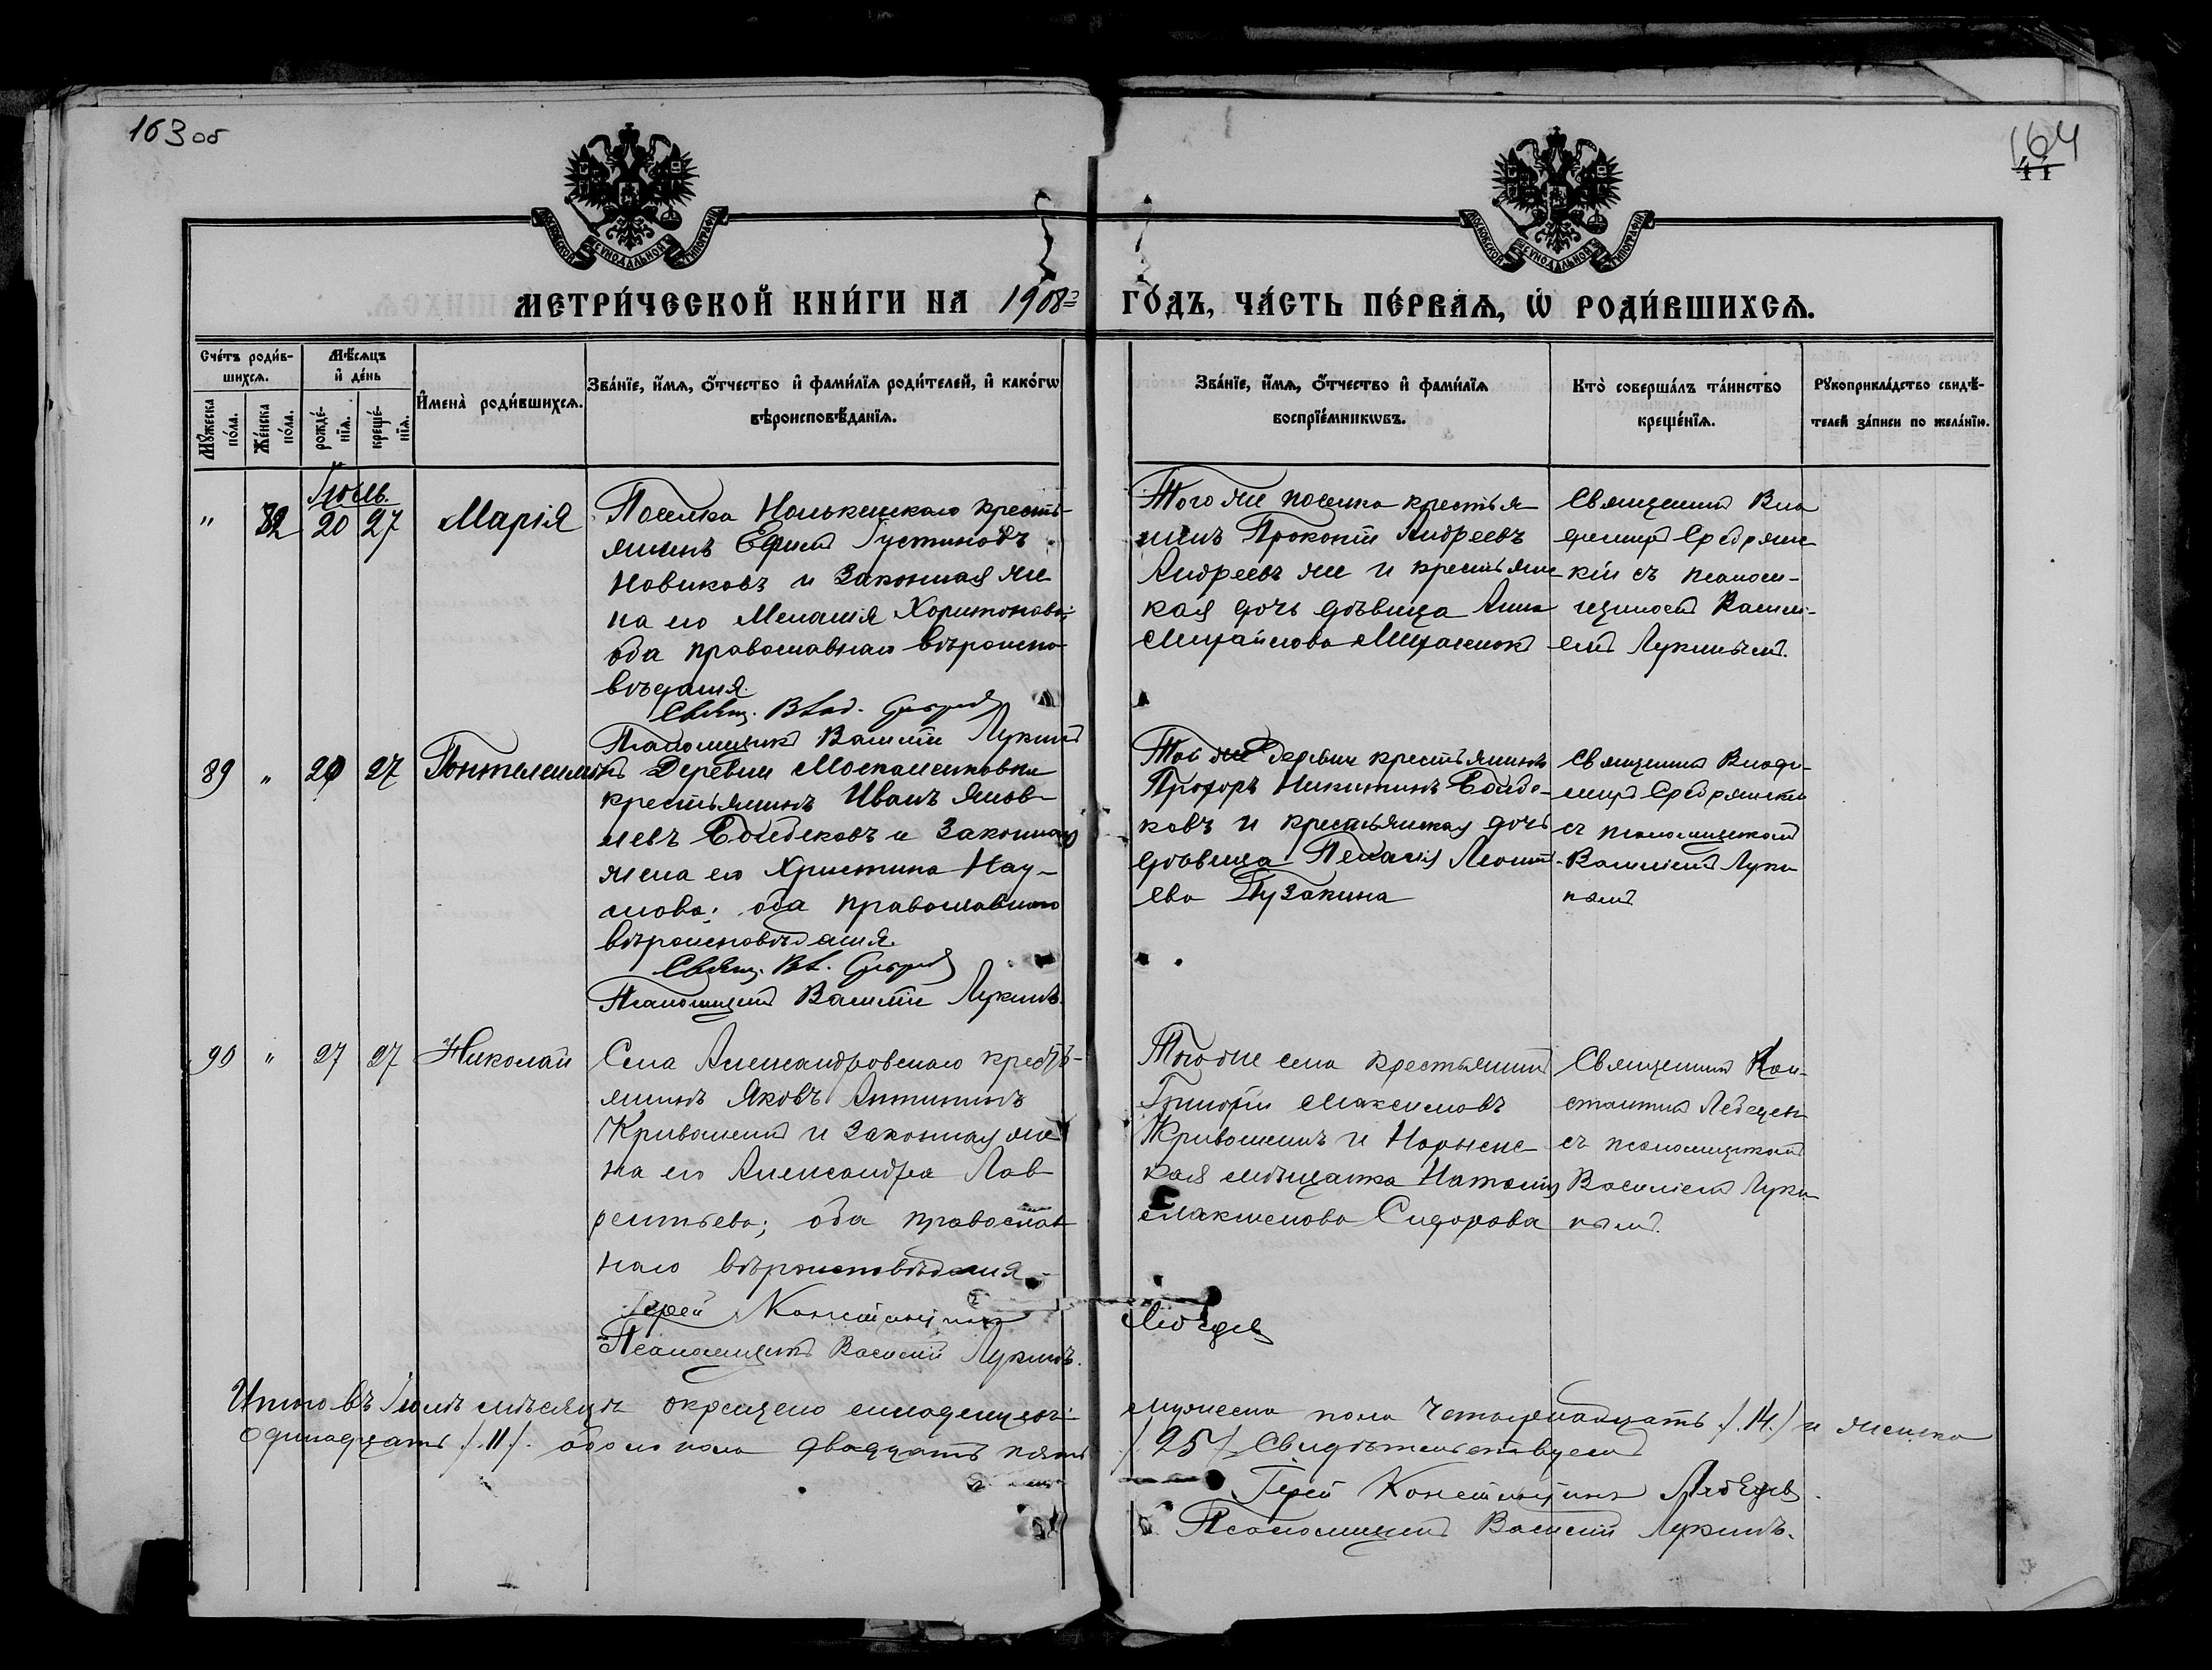 163 об
164
11
МОСКОВСКОЙ СѴНОДАЛЬНОЙ ТИПОГРАФІИ
МОСКОВСКОЙ СѴНОДАЛЬНОЙ ТИПОГРАФІИ
МЕТРИ́ЧЕСКОЙ КНИ́ГИ НА 1908 ГО́ДЪ, ЧА́СТЬ ПЕ́РВАѦ, Ѡ҆ РОДИ́ВШИХСѦ.
Сче́тъ роди́в-
шихсѧ.
Мѣ́сѧцъ
и҆ де́нь
И҆мена̀ роди́вшихсѧ.
Зва́нїе, и҆́мѧ, ѻ҆́тчество и҆ фами́лїѧ роди́телей, и҆ како́гѡ
вѣроисповѣ́данїѧ.
Зва́нїе, и҆́мѧ, ѻ҆́тчество и҆ фами́лїѧ
воспрїе́мникѡвъ.
Кто̀ соверша́лъ та́инство
креще́нїѧ.
Рꙋкоприкла́дство свидѣ́-
телей за́писи по жела́нїю.
Мꙋ́жеска
по́ла.
Же́нска
по́ла.
рожде́-
нїѧ.
креще́-
нїѧ.
Іюль.
" 82 20 27 Марія
Поселка крестья-
янинъ Ефимъ Густиновъ
Новиковъ и законная же
на его Меланія Харитонова;
оба православнаго вѣроиспо-
вѣданія.
Свящ. Влад.
Псаломщикъ Василій Лукинъ
Того же поселка крестья-
нинъ Прокопій Андреевъ
Андреевъ же и крестьянс-
кая дочь дѣвица Анна
Михайлова
Священникъ Вла
димиръ Сребрянс
кій съ псалом-
щикомъ Васили-
емъ Лукинымъ.
89 " 20 27 Пантелеимонъ
Деревни Москаленковки
крестьянинъ Иванъ Яковлевъ
и законная
жена его Христина Нау-
мова; оба православнаго
вѣроисповѣданія.
Свящ. Вл.
Псаломщикъ Василій Лукинъ.
Той же деревни крестьянинъ
Прохоръ Никитинъ
ковъ и крестьянская дочь
дѣвица Пелагія Леонть-
ева Пузакина
Священникъ Влади-
миръ Сребрянскій
съ псаломщикомъ
Василіемъ Луки
нымъ
90 " 27 27 Николай
Села Александровскаго кресть-
янинъ Яковъ Антипинъ
Кривошеинъ и законная же
на его Александра Лав-
рентьева; оба православ
наго вѣроисповѣданія.
Іерей Константинъ Лебедев
Псаломщикъ Василій Лукинъ.
Того же села крестьянинъ
Григорій Максимовъ
Кривошеинъ и
кая мѣщанка Наталія
Максимова Сидорова
Священникъ Кон-
стантинъ Лебедевъ
съ псаломщикомъ
Василіемъ Луки
нымъ.
Итого въ Іюлѣ мѣсяцѣ окрещено младенцевъ: мужеска пола четырнадцать /.14./ и женска
одинадцать /.11/. обоего пола двадцать пять /25/ Свидѣтельствуемъ
Іерей Константинъ Лебедев.
Псаломщикъ Василій Лукинъ.